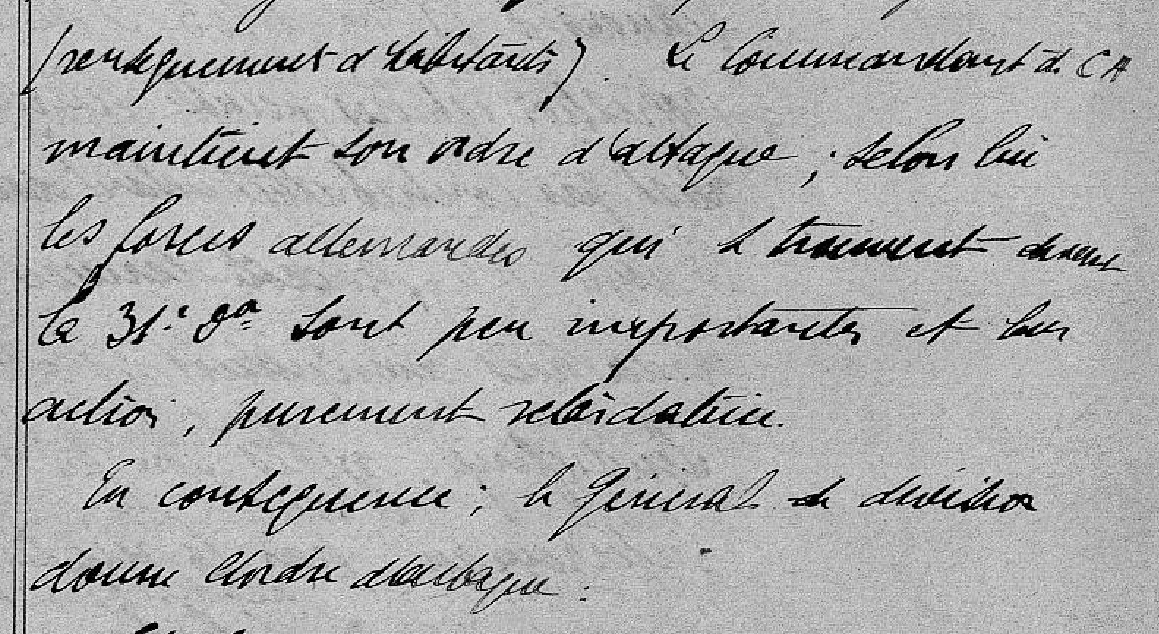 (renseignement d'habitants). Le Commandant de CA
maintient son ordre d'attaque ; selon lui
les forces allemandes qui se trouvent devant
la 31e Don sont peu importantes et leur
action, purement retardatrice.
En conséquence ; le Général de division
donne l'ordre d'attaque :